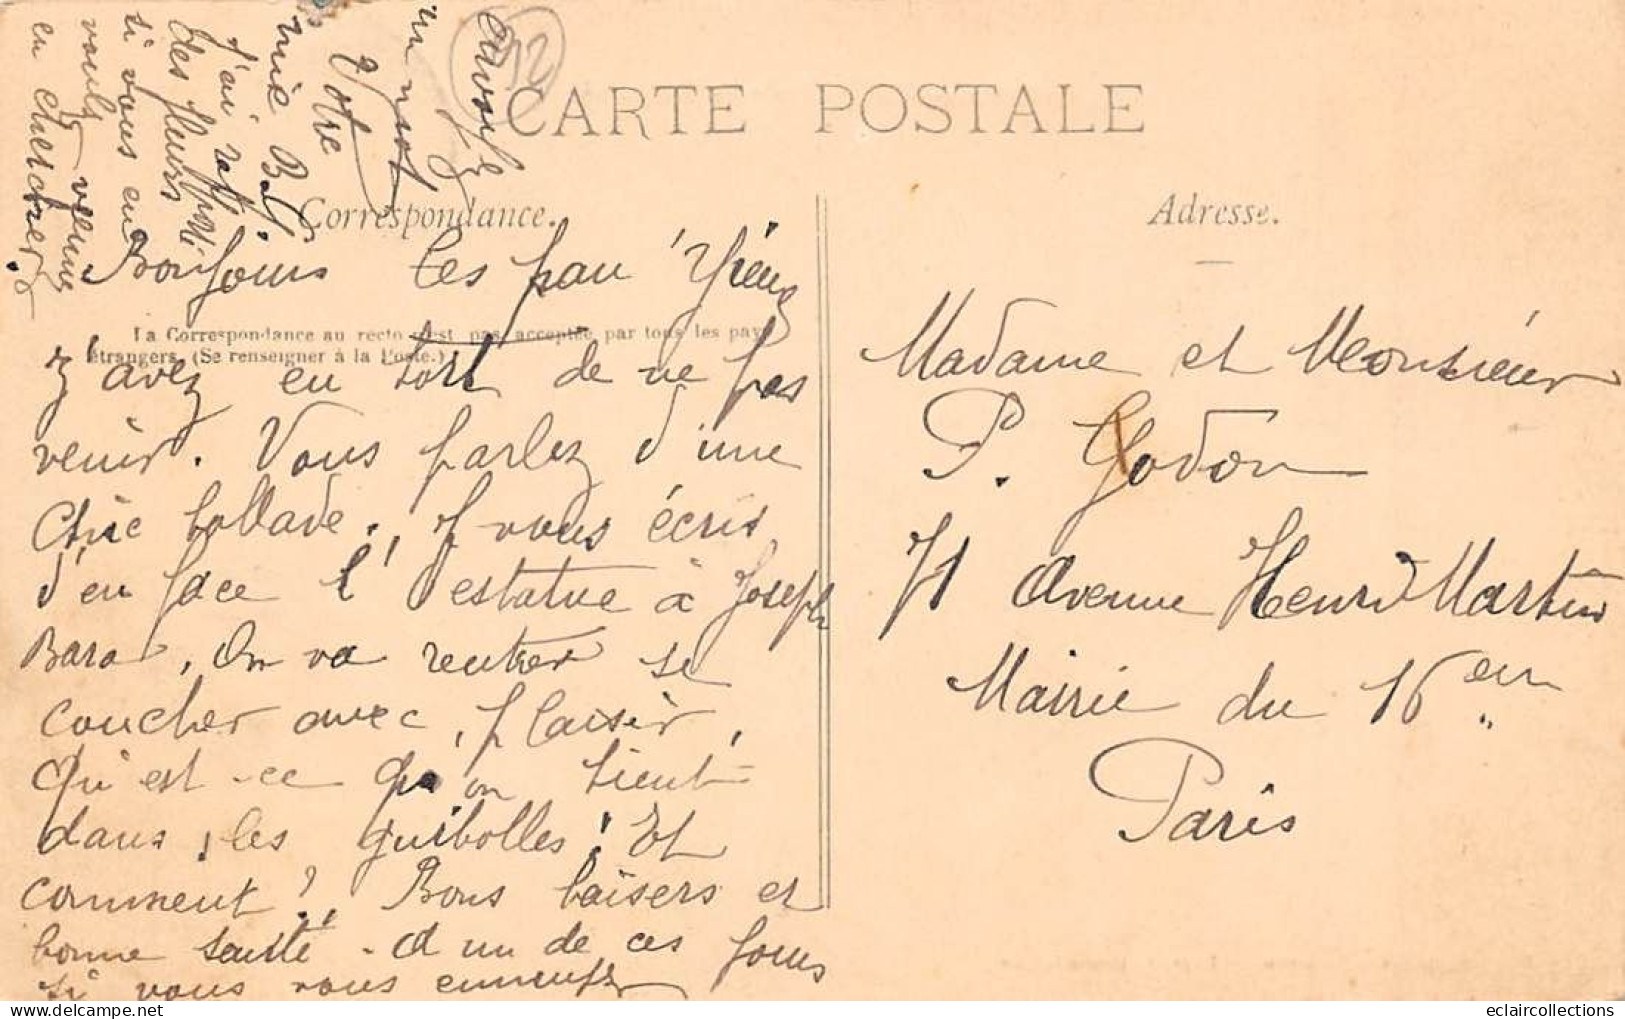 CARTE POSTALE
Correspondance.
Adresse.
Bonjour les
La Correspondance au recto n'est pas acceptée par tous les pays
étrangers. (Se renseigner à la Poste.)
avez eu tort de ne pas
venir. Vous parlez d'une
chic ballade. J vous écris
d'en face l' estatue à Joseph
Bara, On va rentrer se
coucher avec plaisir,
qu'est-ce qu'on tient
dans les guibolles! Et
comment! Bons baisers et
bonne santé - A un de ces jours
si vous vous ennuyez
envoyez
un mot
Votre
mie
J'ai
des fleurs
si vous en
voulez venez
en chercher
Madame et Monsieur
P. Godon
71 avenue Henri Martin
Mairie du 16 em
Paris
12
eclaircollections